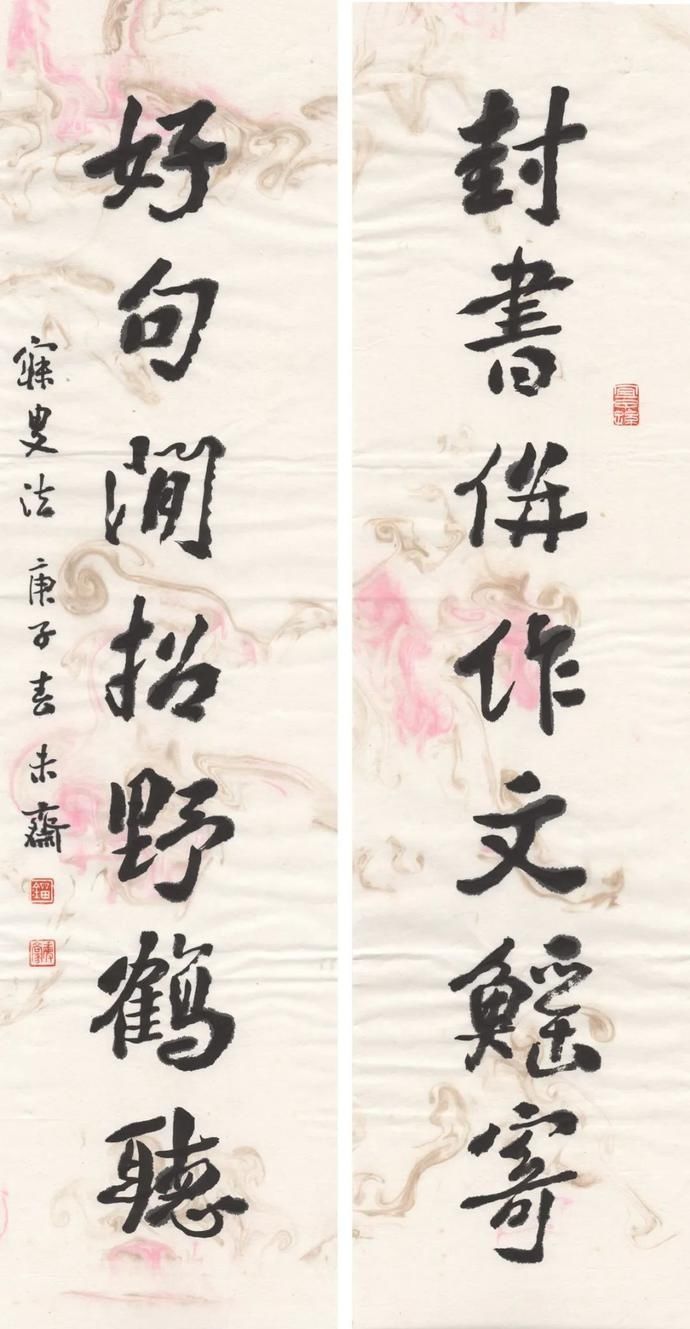 封書併作文鰩寄
好句閒招野鶴聽
寐叟法 庚子春 未齋